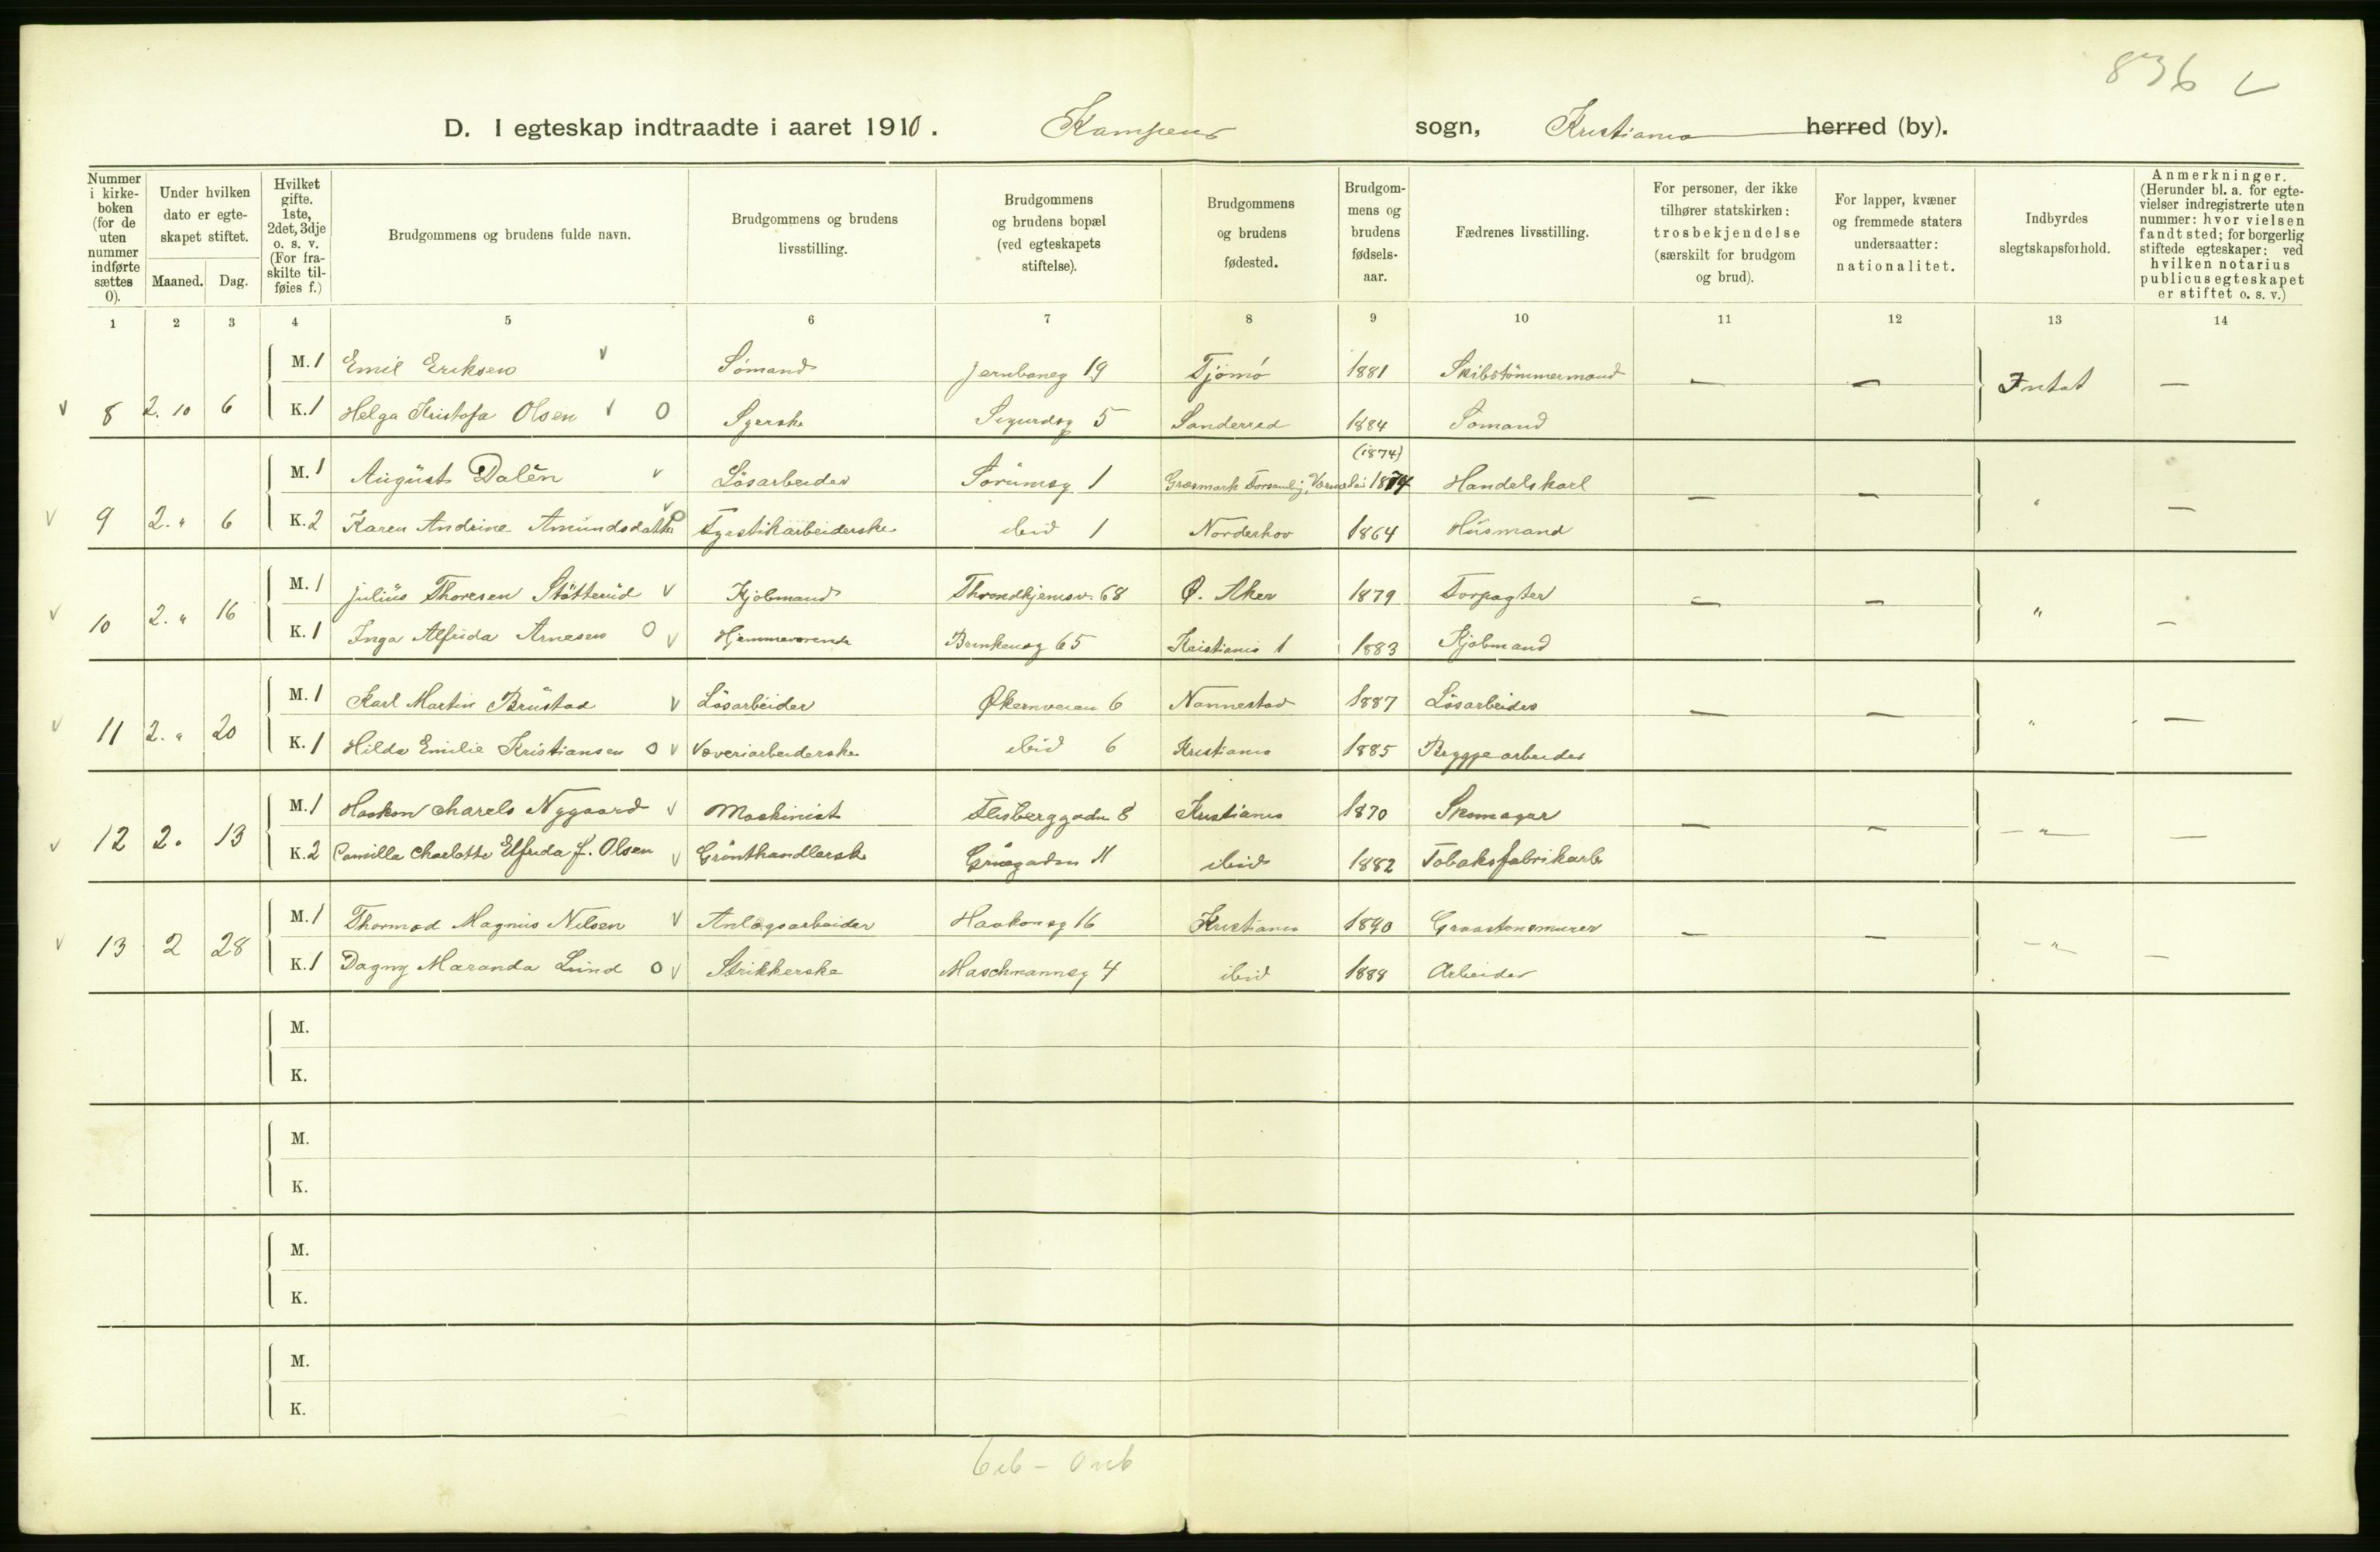 836
D. I egteskap indtraadte i aaret 1910. Kampens sogn, Kristiania herred (by).
Nummer i kirkeboken (for de uten nummer indførte sættes 0).
Under hvilken dato er egteskapet stiftet.
Maaned. Dag.
Hvilket gifte. 1ste, 2det, 3dje o. s. v. (For fraskilte tilføies f.)
Brudgommens og brudens fulde navn.
Brudgommens og brudens livsstilling.
Brudgommens og brudens bopæl (ved egteskapets stiftelse).
Brudgommens og brudens fødested.
Brudgommens og brudens fødselsaar.
Fædrenes livsstilling.
For personer, der ikke tilhører statskirken: trosbekjendelse (særskilt for brudgom og brud).
For lapper, kvæner og fremmede staters undersaatter: nationalitet.
Indbyrdes slegtskapsforhold.
Anmerkninger. (Herunder bl. a. for egtevielser indregistrerte uten nummer: hvor vielsen fandt sted; for borgerlig stiftede egteskaper: ved hvilken notarius publicus egteskapet er stiftet o. s. v.)
1 2 3 4 5 6 7 8 9 10 11 12 13 14
M. 1 Emil Eriksen v Sömand Jernbaneg 19 Tjömö 1881 Skibstömmermand — — Intet —
v 8 2. 10 6 K. 1 Helga Kristofa Olsen v O Syerske Sigurdsg 5 Sanderred 1884 Sömand
(1874)
M. 1 August Dalên v Lösarbeider Sörumsg 1 Græsmark Forsamlg, Værmeland 1874 Handelskarl — — " —
v 9 2. " 6 K. 2 Karen Andrine Amundsdatter v O Fyrstikarbeiderske ibid 1 Norderhov 1864 Husmand
M. 1 Julius Thoresen Stötterud v Kjöbmand Throndhjemsv. 68 Ø. Aker 1879 Forpagter — — " —
v 10 2. " 16 K. 1 Inga Alfrida Arnesen O v Hjemmeværende Brinkensg 65 Kristiania 1 1883 Kjöbmand
M. 1 Karl Martin Brustad v Lösarbeider Økernveien 6 Nannestad 1887 Lösarbeider — — " —
v 11 2. " 20 K. 1 Hilda Emilie Kristiansen O v Væveriarbeiderske ibid 6 Kristiania 1885 Bryggearbeider
M. 1 Haakon Charels Nygaard v Maskinist Flisberggaden 8 Kristiania 1870 Skomager — — — " — —
v 12 2. 13 K. 2 Camilla Charlotte Elfrida f. Olsen v Grönthandlerske Grüegaden 11 ibid 1882 Tobaksfabrikarb
M. 1 Thormod Magnus Nilsen v Anlægsarbeider Haakonsg 16 Kristiania 1890 Graastensmurer — — — " — —
v 13 2 28 K. 1 Dagny Maranda Lund O v Strikkerske Maschmannsg 4 ibid 1888 Arbeider
M.
K.
M.
K.
M.
K.
M.
K.